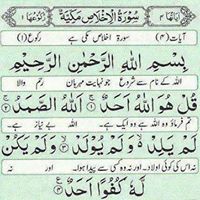 اٰیَاتُهَا ۴ سُوْرَةُ الْاِخْلَاصِ مَکِّیَّةٌ رُکُوْعُهَا ۱
آیات(۴) سورۃ الاخلاص مکی ہے رکوع(۱)
بِسْمِ اللّٰهِ الرَّحْمٰنِ الرَّحِیْمِ
اللہ کے نام سے شروع جو نہایت مہربان رحم والا
قُلْ هُوَ اللّٰهُ اَحَدٌ ۱ اَللّٰهُ الصَّمَدُ ۲
تم فرماؤ وہ اللہ ہے وہ ایک ہے۔ اللہ بے نیاز ہے۔
لَمْ یَلِدْ ۙ وَلَمْ یُوْلَدْ ۳ وَلَمْ یَکُنْ
نہ اس کی کوئی اولاد۔ اور نہ وہ کسی سے پیدا ہوا۔ اور نہ
لَّهٗ کُفُوًا اَحَدٌ ۴